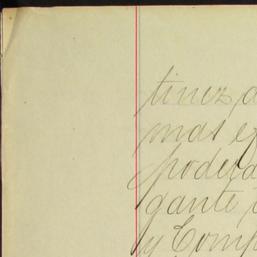 tinez, d
mas ef
podera
gante
y Comp